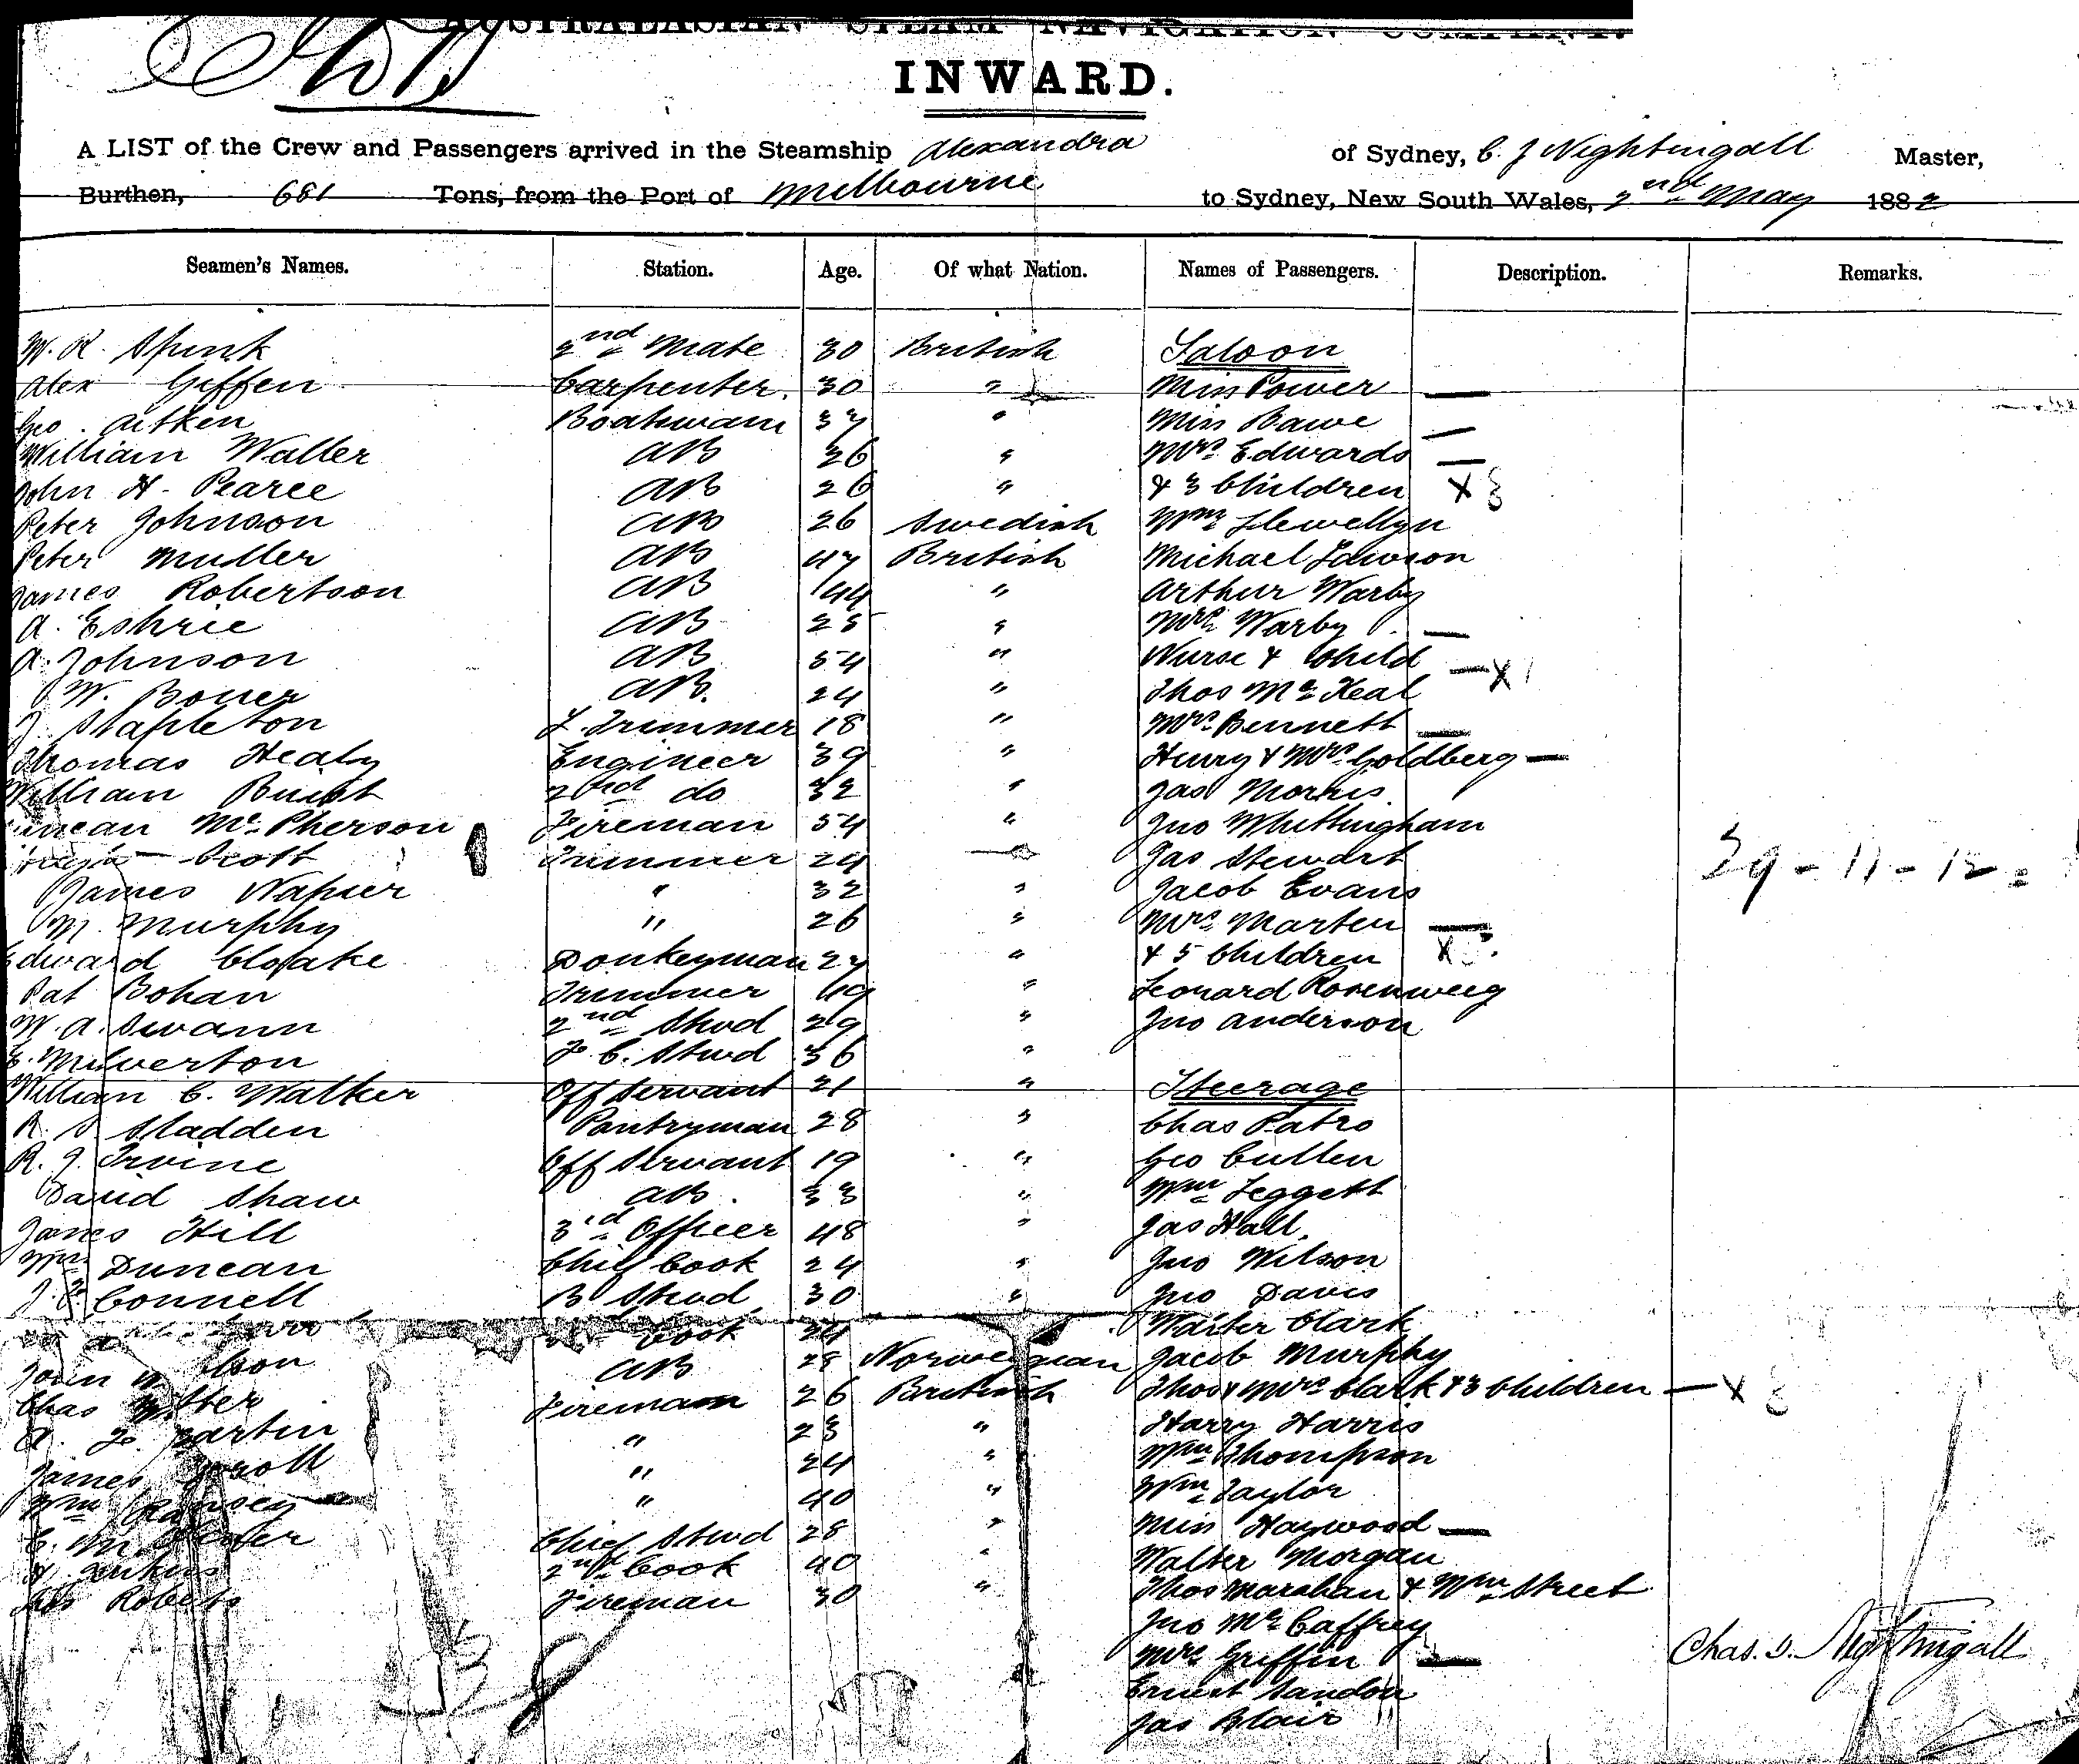 AUSTRALASIAN STEAM NAVIGATION COMPANY.
INWARD.
A LIST of the Crew and Passengers arrived in the Steamship Alexandra of Sydney, C. J Nightingall Master,
Burthen, 681 Tons, from the Port of Melbourne to Sydney, New South Wales, 2nd May 1882
Seamen's Names. Station. Age. Of what Nation. Names of Passengers. Description. Remarks.
W. R. Spink 2nd Mate 30 British Saloon
Alex Giffen Carpenter. 30 " Miss Power —
Geo. Aitken Boatswain 37 " Miss Bawe —
William Waller AB 26 " Mrs Edwards —
John H. Pearce AB 26 " & 3 Children X 3
Peter Johnson AB 26 Swedish Wm Llewellyn
Peter Muller AB 47 British Michael Lawson
James Robertson AB 44 " Arthur Warby
A. Eshrie AB 25 " Mrs Warby —
A. Johnson AB 54 " Nurse & Child — X 1
W. Bower AB. 24 " Thos McKeal
J. Stapleton L. Trimmer 18 " Mrs Bennett —
Thomas Healy Engineer 39 " Henry & Mrs Goldberg —
William Buist 2nd do 32 " Jas Morris
Duncan McPherson Fireman 54 " Jno Whittingham
Scott Trimmer 24 Jas Stewart
29 - 11 - 12 =
James Napier " 32 " Jacob Evans
M. Murphy " 26 " Mrs Marten —
Edward Cloake Donkeyman 27 " & 5 Children X 5
Pat Bohan Trimmer 49 " Leonard Rosenweig
W. A. Swann 2nd Stwd 29 " Jno Anderson
E. Milverton F. C. Stwd 36 "
William C. Walker Off Servant 21 " Steerage
R. S Sladden Pantryman 28 " Chas Patro
R. J. Irvine Off Servant 19 " Geo Cullen
David Shaw AB. 33 " Wm Leggett
James Hill 3rd Officer 48 " Jas Hall.
Wm Duncan Chief Cook 24 " Jno Wilson
J. Connell B Stwd 30 " Jno Davis
Cook 24 Walter Clark
John AB 28 Norwegian Jacob Murphy
Chas Fireman 26 British Thos & Mrs Clark & 3 Children — X 3
A. Martin " 23 " Harry Harris
James " 24 " Wm Thompson
Wm Ramsey " 40 " Wm Taylor
C. Chief Stwd 28 " Miss Haywood —
H. Jenkins 2nd Cook 40 " Walter Morgan
Roberts Fireman 30 " Thos Marahan & Wm Street
Jno McCaffrey
Mrs Griffin —
Chas. J. Nightingall
Ernest Sandon
Jas Blair